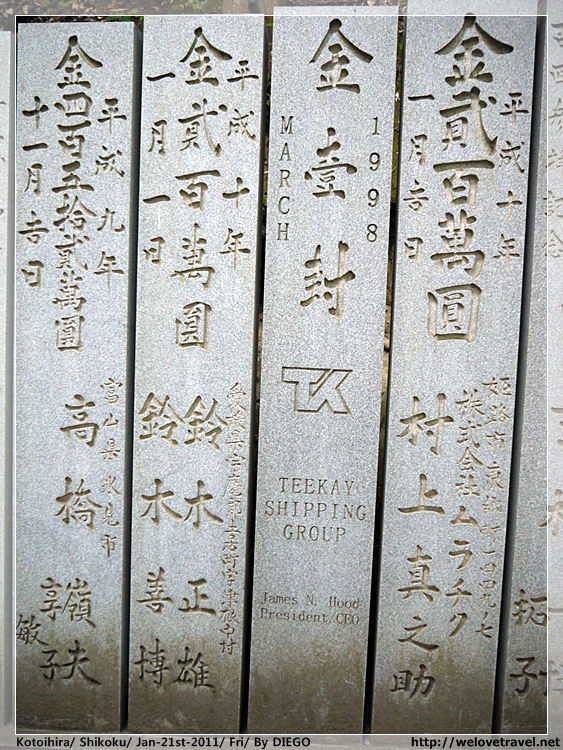 金貳百萬圓
平成十年
一月吉日
姫路市
株式会社ムラチク
村上真之助
金壹封
1998
MARCH
TK
TEEKAY
SHIPPING
GROUP
James N. Hood
President/CEO
金貳百萬圓
平成十年
一月一日
鈴木正雄
鈴木善博
金四百五拾貳萬圓
平成九年
十一月吉日
富山県氷見市
高橋嶺夫
享子
敏
拓子
Kotoihira/ Shikoku/ Jan-21st-2011/ Fri/ By DIEGO
http://welovetravel.net